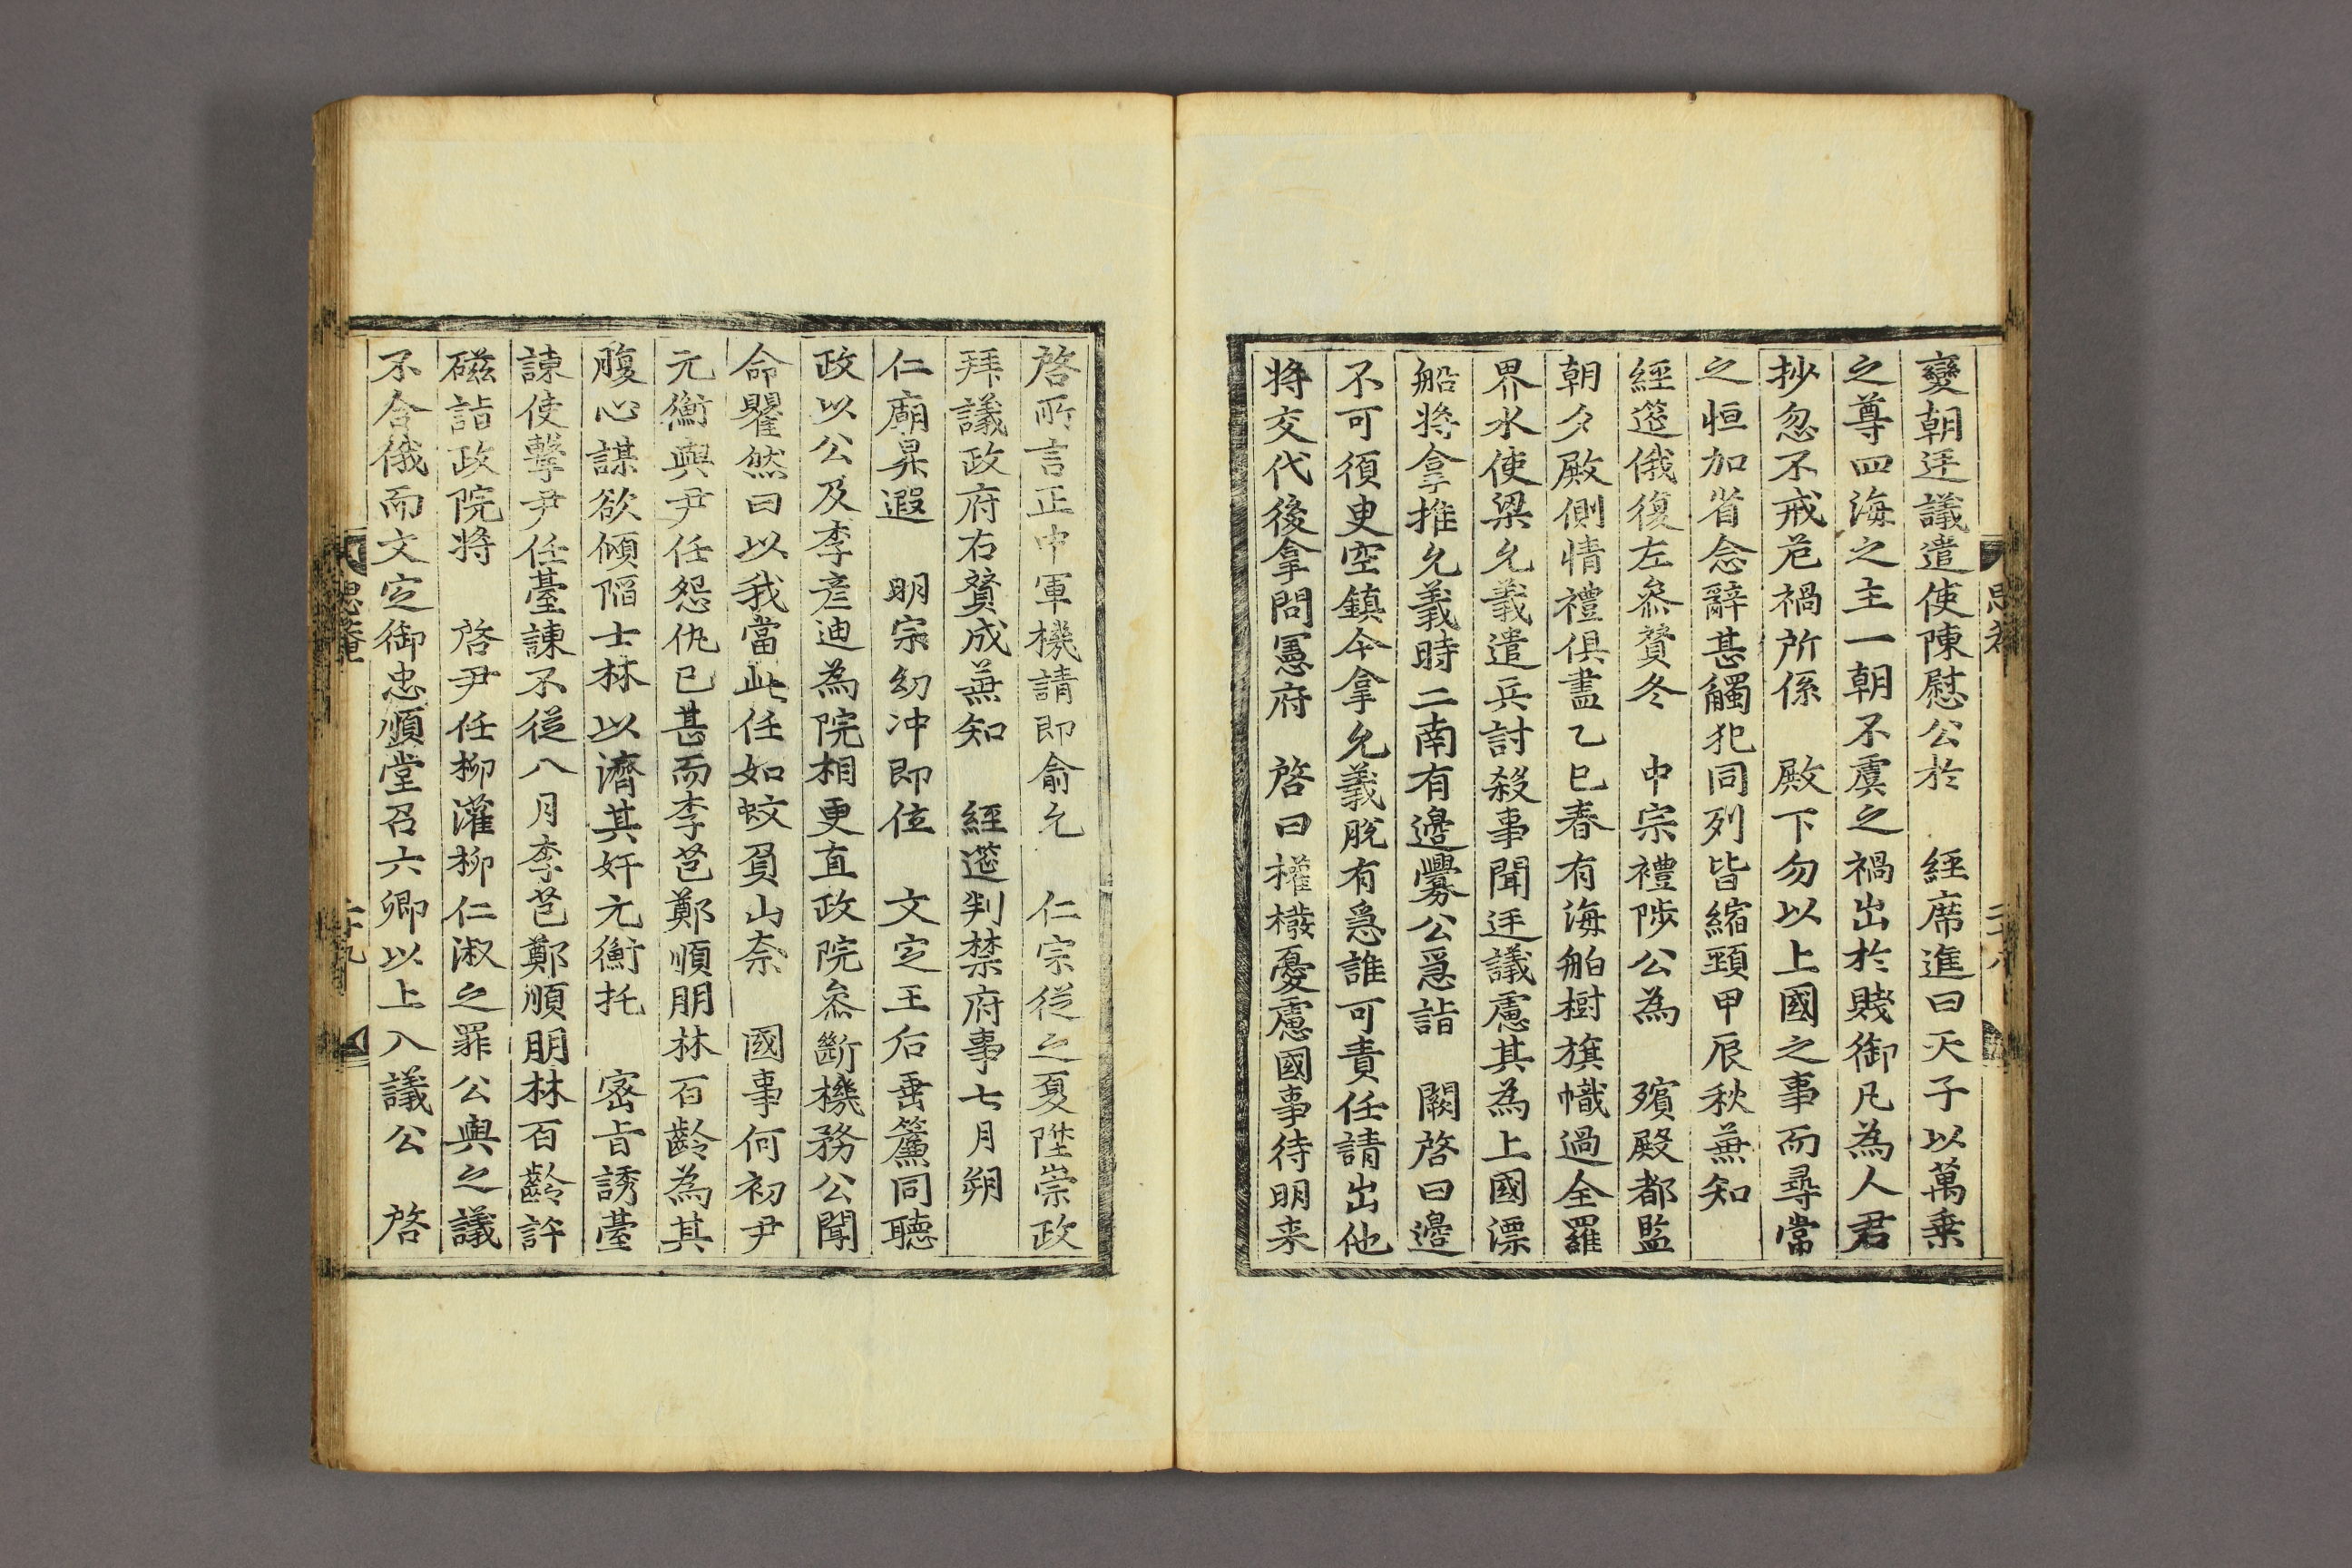 變朝廷議遣使陳慰公於　經席進曰天子以萬乗
之尊四海之主一朝不虞之禍出於賤御凡為人君
抄忽不戒危禍所係　殿下勿以上國之事而尋常
之恒加省念辭甚觸犯同列皆縮頸甲辰秋兼知
經筵俄復左叅贊冬　中宗禮陟公為　殯殿都監
朝夕殿側情禮俱盡乙巳春有海舶樹旗幟過全羅
界水使梁允義遣兵討殺事聞廷議慮其為上國漂
船將拿推允義時二南有邊釁公爲詣　闕啓曰邊
不可須㬰空鎮今拿允義脫有急誰可責任請出他
將交代後拿問憲府　啓曰權橃憂慮國事待明来
啓所言正中軍機請即俞允　仁宗從之夏陞崇政
拜議政府右贊成兼知　經筵判禁府事七月朔
仁廟昇遐　明宗幼冲即位　文定王后垂簾同聽
政以公及李彦迪為院相更直政院叅斷機務公聞
命瞿然曰以我當此任如蚊負山奈　國事何初尹
元衡與尹任怨仇已甚而李芑鄭順朋林百齡為其
腹心謀欲傾陷士林以濟其奸元衡托　密旨誘臺
諌使擊尹任臺諌不從八月李芑鄭順朋林百齡許
磁詣政院將　啓尹任柳灌柳仁淑之罪公與之議
不合俄而文定御忠順堂召六卿以上入議公　啓
思菴
二十九
二十八